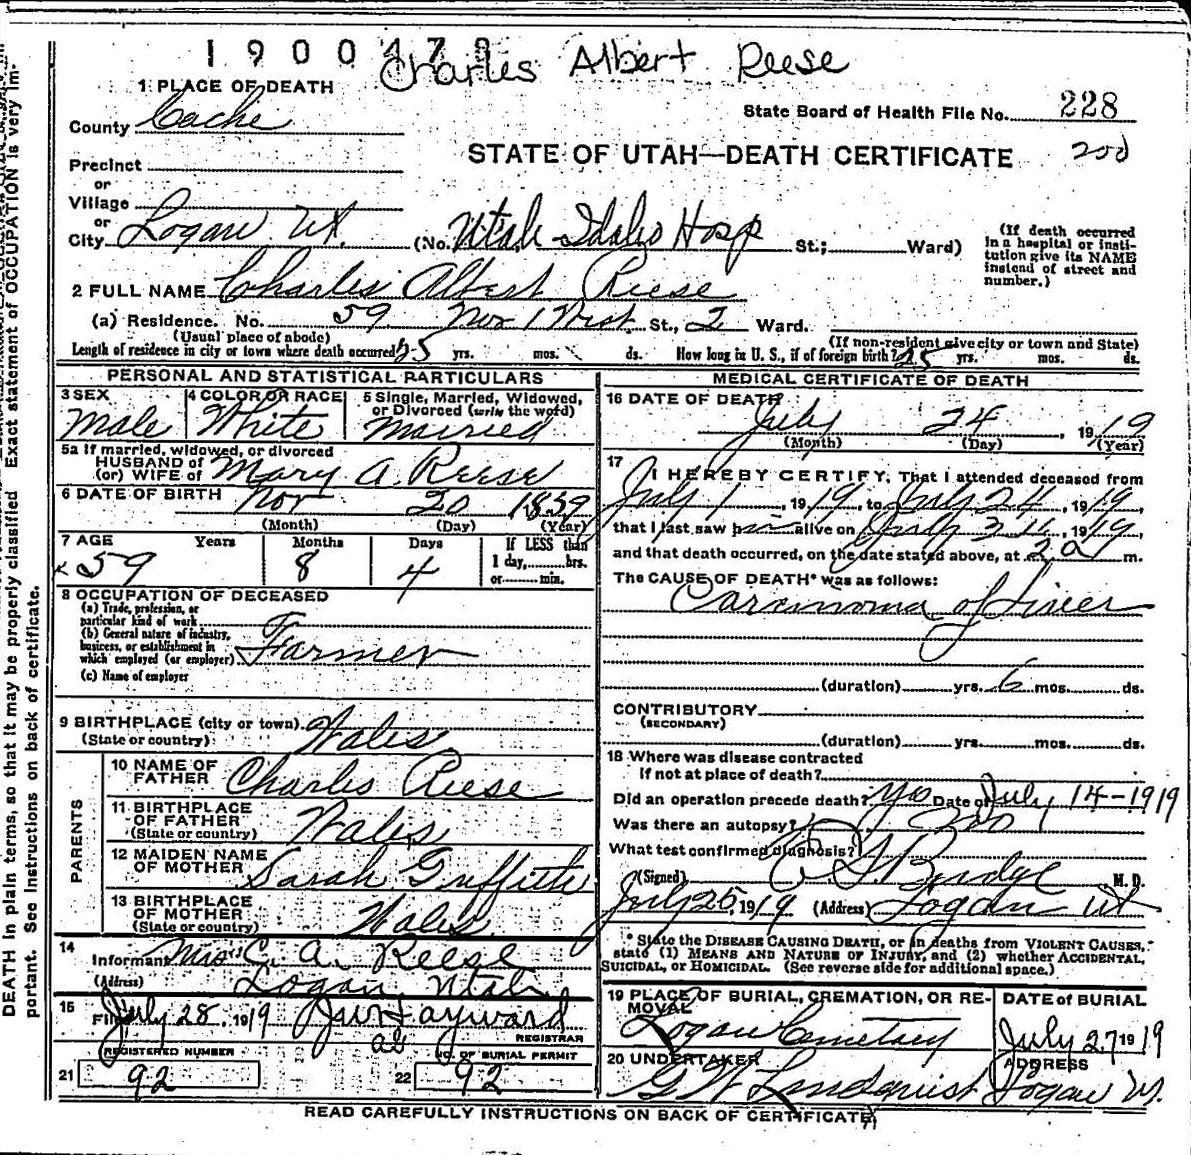 1900478
Charles Albert Reese
1 PLACE OF DEATH
County Cache
State Board of Health File No. 228
STATE OF UTAH—DEATH CERTIFICATE 200
Precinct
or
Village
or
City Logan Ut. (No. Utah Idaho Hosp St.; Ward)
(If death occurred in a hospital or insti-
tution give its NAME
instead of street and
number.)
2 FULL NAME Charles Albert Reese
(a) Residence. No. 59 Nor 1 West St., 2 Ward.
(Usual place of abode) (If non-resident give city or town and State)
Length of residence in city or town where death occurred yrs. mos. ds. How long in U. S., if of foreign birth? yrs. mos. ds.
PERSONAL AND STATISTICAL PARTICULARS
3 SEX 4 COLOR OR RACE 5 Single, Married, Widowed,
or Divorced (write the word)
Male White Married
5a If married, widowed, or divorced
HUSBAND of
(or) WIFE of Mary A. Reese
6 DATE OF BIRTH Nov 20 1859
(Month) (Day) (Year)
7 AGE Years Months Days If LESS than
1 day, hrs.
or min.
59 8 4
8 OCCUPATION OF DECEASED
(a) Trade, profession, or
particular kind of work
(b) General nature of industry,
business, or establishment in
which employed (or employer) Farmer
(c) Name of employer
9 BIRTHPLACE (city or town)
(State or country) Wales
PARENTS
10 NAME OF
FATHER Charles Reese
11 BIRTHPLACE
OF FATHER
(State or country) Wales
12 MAIDEN NAME
OF MOTHER Sarah Griffiths
13 BIRTHPLACE
OF MOTHER
(State or country) Wales
14
Informant Mrs C. A. Reese
(Address) Logan Utah
15
Filed July 28, 1919 Hayward
REGISTRAR
REGISTERED NUMBER NO. OF BURIAL PERMIT
21 92 22 92
MEDICAL CERTIFICATE OF DEATH
16 DATE OF DEATH
July 24, 1919
(Month) (Day) (Year)
17
I HEREBY CERTIFY, That I attended deceased from
July 1, 1919, to July 24, 1919,
that I last saw him alive on July, 1919,
and that death occurred, on the date stated above, at 2 a m.
The CAUSE OF DEATH* was as follows:
Carcinoma of Liver
(duration) yrs. 6 mos. ds.
CONTRIBUTORY
(SECONDARY)
(duration) yrs. mos. ds.
18 Where was disease contracted
if not at place of death?
Did an operation precede death? Yes Date of July 14-1919
Was there an autopsy? No
What test confirmed diagnosis?
(Signed) Budge M. D.
July 25, 1919 (Address) Logan Ut
* State the DISEASE CAUSING DEATH, or in deaths from VIOLENT CAUSES,
state (1) MEANS AND NATURE OF INJURY, and (2) whether ACCIDENTAL,
SUICIDAL, or HOMICIDAL. (See reverse side for additional space.)
19 PLACE OF BURIAL, CREMATION, OR RE-
MOVAL DATE of BURIAL
Logan Cemetery July 27 1919
20 UNDERTAKER ADDRESS
G W Lindquist Logan Ut.
READ CAREFULLY INSTRUCTIONS ON BACK OF CERTIFICATE
Exact statement of OCCUPATION is very im-
DEATH in plain terms, so that it may be properly classified
portant. See Instructions on back of certificate.